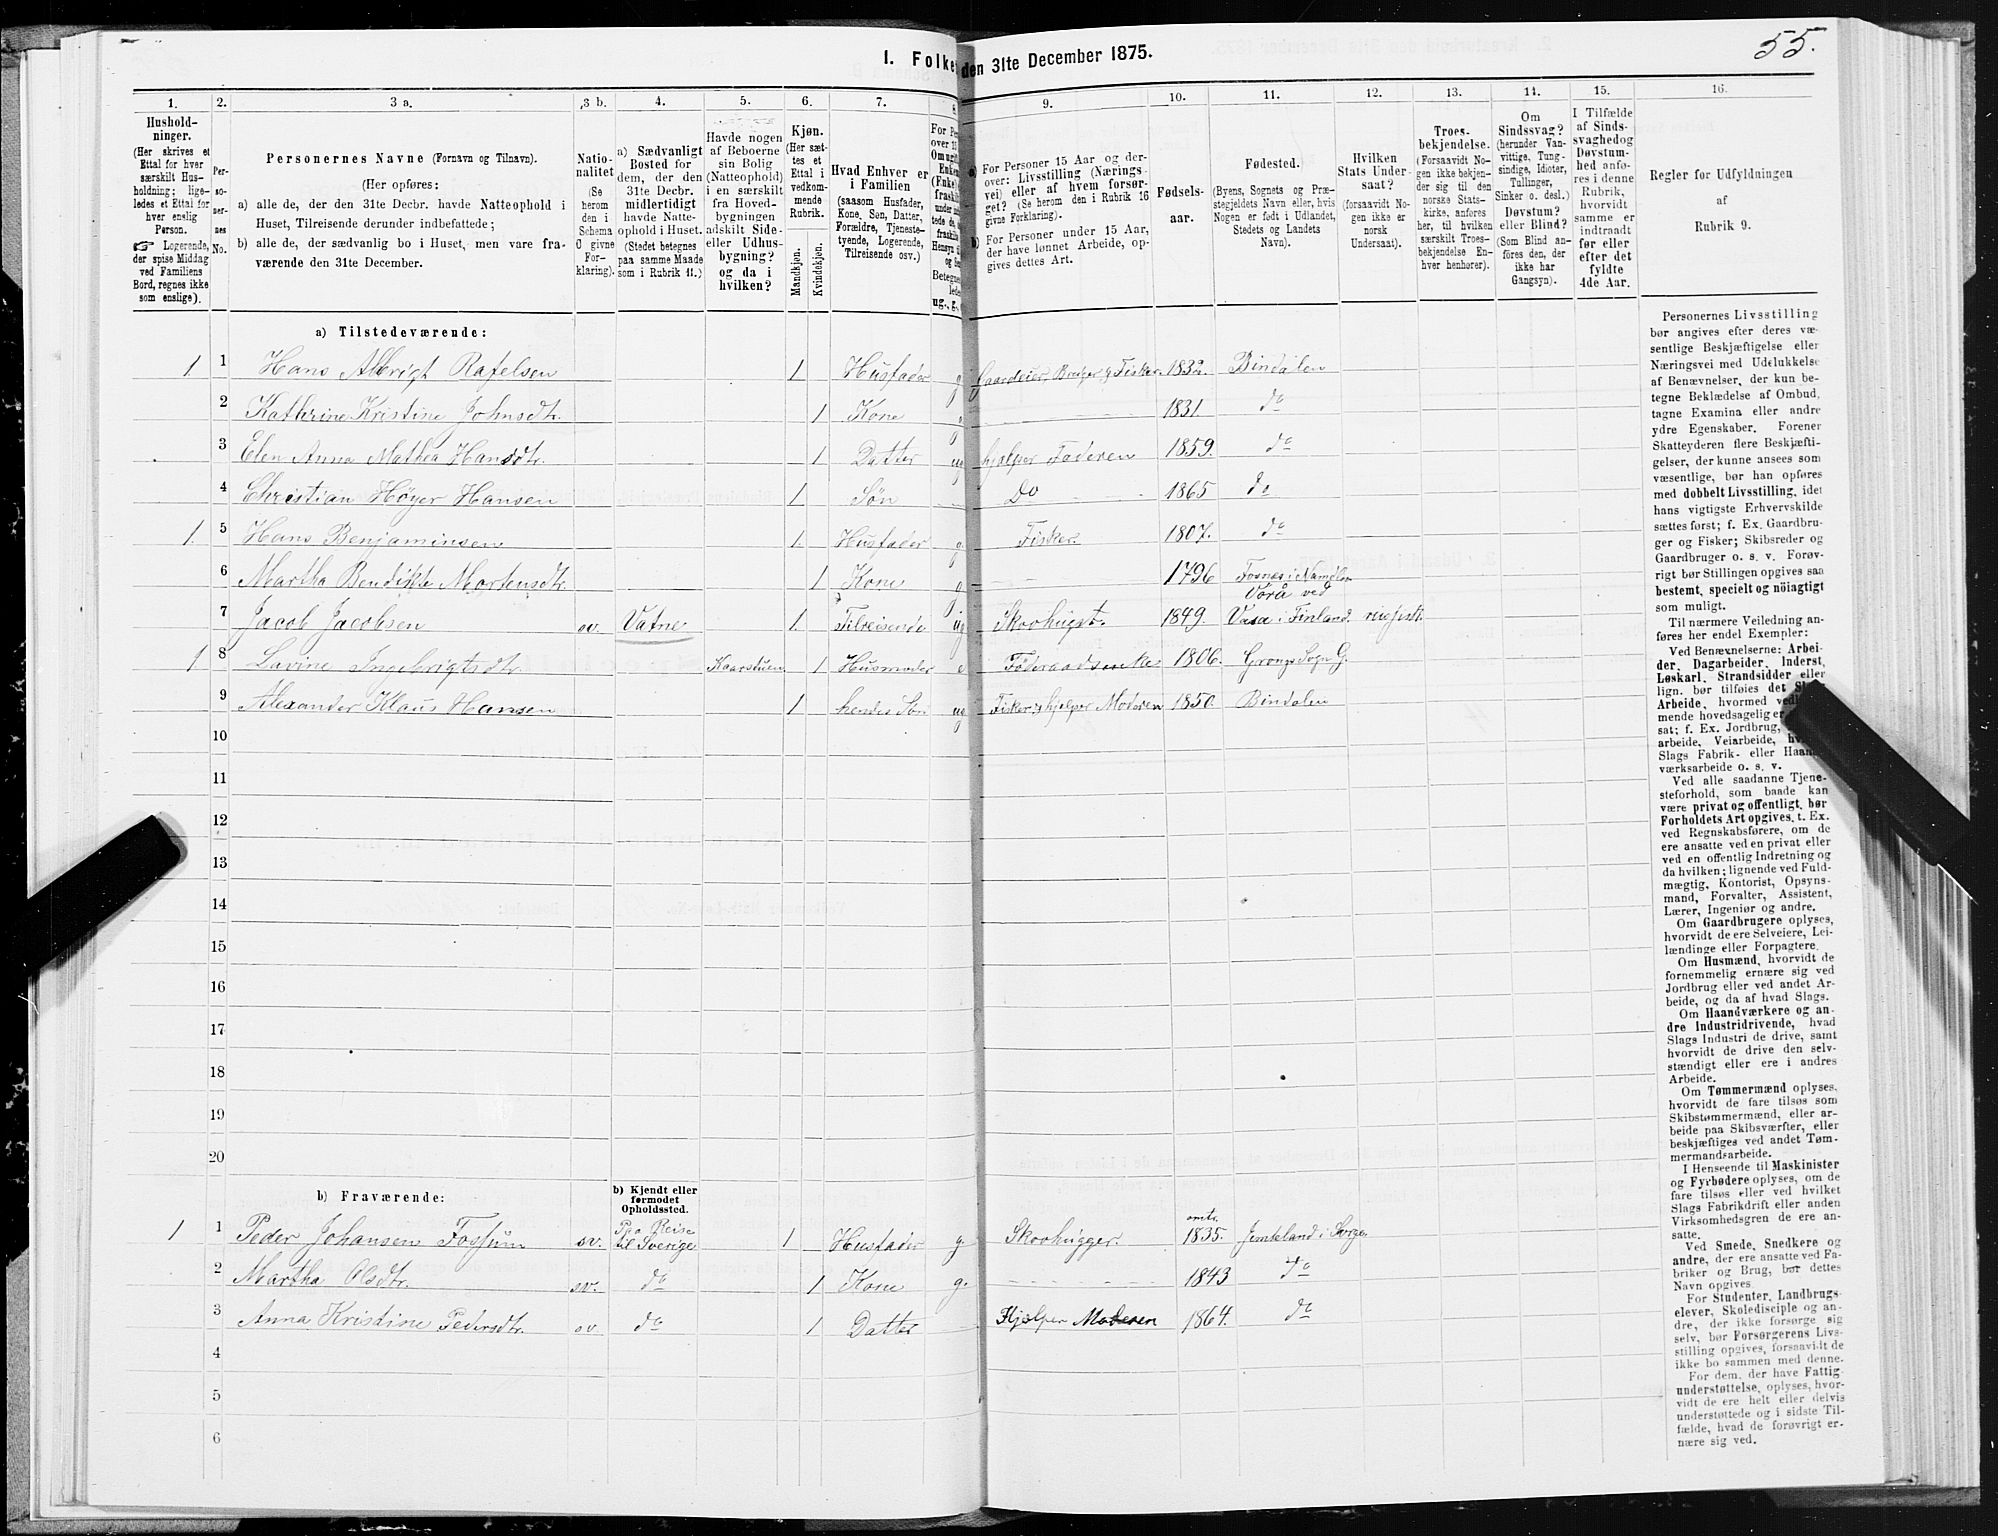 55.
I. Folke den 31te December 1875.
1. 2. 3 a. 3 b. 4. 5. 6. 7. 8. 9. 10. 11. 12. 13. 14. 15. 16.
Hushold-
ninger.
(Her skrives et
Ettal for hver
særskilt Hus-
holdning; lige-
ledes et Ettal for
hver enslig
Person.
☞ Logerende,
der spise Middag
ved Familiens
Bord, regnes ikke
som enslige).
Per-
so-
ner-
nes
No.
Personernes Navne (Fornavn og Tilnavn).
(Her opføres:
a) alle de, der den 31te Decbr. havde Natteophold i
Huset, Tilreisende derunder indbefattede;
b) alle de, der sædvanlig bo i Huset, men vare fra-
værende den 31te December.
Natio-
nalitet
(Se
herom
den i
Schema
O givne
For-
klaring).
a) Sædvanligt
Bosted for
dem, der den
31te Decbr.
midlertidigt
havde Natte-
ophold i Huset.
(Stedet betegnes
paa samme Maade
som i Rubrik 11.)
Havde nogen
af Beboerne
sin Bolig
(Natteophold)
i en særskilt
fra Hoved-
bygningen
adskilt Side-
eller Udhus-
bygning?
og da i
hvilken?
Kjøn.
(Her sæt-
tes et
Ettal i
vedkom-
mende
Rubrik.
Mandkjøn.
Kvindekjøn.
Hvad Enhver er
i Familien
(saasom Husfader,
Kone, Søn, Datter,
Forældre, Tjeneste-
tyende, Logerende,
Tilreisende osv.)
a) For Personer 15 Aar og der-
over: Livsstilling (Nærings-
vei) eller af hvem forsør-
get? (Se herom den i Rubrik 16
givne Forklaring).
b) For Personer under 15 Aar,
der have lønnet Arbeide, op-
gives dettes Art.
Fødsels-
aar.
Fødested.
(Byens, Sognets og Præ-
stegjeldets Navn eller, hvis
Nogen er født i Udlandet,
Stedets og Landets
Navn).
Hvilken
Stats Under-
saat?
(forsaavidt No-
gen ikke er
norsk
Undersaat).
Troes-
bekjendelse.
(Forsaavidt No-
gen ikke bekjen-
der sig til den
norske Stats-
kirke, anføres
her, til hvilken
særskilt Troes-
bekjendelse En-
hver henhører).
Om
Sindssvag?
(herunder Van-
vittige, Tung-
sindige, Idioter,
Tullinger,
Sinker o. desl.)
Døvstum?
eller Blind?
(Som Blind an-
føres den, der
ikke har
Gangsyn).
I Tilfælde
af Sinds-
svaghed og
Døvstum-
hed anfø-
res i denne
Rubrik,
hvorvidt
samme er
indtraadt
før eller
efter det
fyldte
4de Aar.
Regler for Udfyldningen
af
Rubrik 9.
a) Tilstedeværende:
1 1 Hans Albrigt Rafelsen 1 Husfader g Gaardeier, Bruger & Fisker. 1832. Bindalen
2 Kathrine Kristine Johnsdtr. 1 Kone g 1831. do
3 Elen Anna Mathea Hansdtr. 1 Datter ug hjælper Faderen 1859. do
4 Christian Höyer Hansen 1 Søn Do 1865 do
1. 5 Hans Benjaminsen 1. Husfader g. Fisker. 1807. do
6 Martha Bendikte Mortensdtr. 1 Kone g 1796 Fosnes i Namdlen
Vörå ved
7 Jacob Jacobsen ov. Vatne 1. Tilreisende ug Skovhugst. 1849. Vasa i Finland.
1 8 Lavine Ingebrigtsdtr. Kaarstuen 1 Husmoder e Föderaadsenke 1806. Grongs Sogn G.
9 Alexander Klaus Hansen 1 hendes Søn ug Fisker, & hjelper Moderen 1850. Bindalen
10
11
12
13
14
15
16
17
18
19
20
b) Fraværende:
b) Kjendt eller
formodet
Opholdssted.
1 1 Peder Johansen Fossum sv. Paa Reise til Sverige 1 Husfader g Skovhugger. omtr. 1835. Jemteland i Sverge.
2 Martha Olsdtr. sv. do 1 Kone g. 1843 do
3 Anna Kristine Pedersdtr. sv. do 1 Datter Hjelper Moderen 1864. do
4
5
6
Personernes Livsstilling
bør angives efter deres væ-
sentlige Beskjæftigelse eller
Næringsvei med Udelukkelse
af Benævnelser, der kun be-
tegne Beklædelse af Ombud,
tagne Examina eller andre
ydre Egenskaber. Forener
Skatteyderen flere Beskjæfti-
gelser, der kunne ansees som
væsentlige, bør han opføres
med dobbelt Livsstilling, idet
hans vigtigste Erhvervskilde
sættes først; f. Ex. Gaardbru-
ger og Fisker; Skibsreder og
Gaardbruger o. s. v. Forøv-
rigt bør Stillingen opgives saa
bestemt, specielt og nøiagtigt
som muligt.
Til nærmere Veiledning an-
føres her endel Exempler:
Ved Benævnelserne: Arbei-
der, Dagarbeider, Inderst,
Løskarl, Strandsidder eller
lign. bør tilføies det
Arbeide, hvormed
mende hovedsagelig er
sat; f. Ex. Jordbrug,
arbeide, Veiarbeide,
Slags Fabrik- eller
værksarbeide o. s. v.
Ved alle saadanne Tjene-
steforhold, som baade kan
være privat og offentligt, bør
Forholdets Art opgives, t. Ex.
ved Regnskabsførere, om de
ere ansatte ved en privat eller
ved en offentlig Indretning og
da hvilken; lignende ved Fuld-
mægtig, Kontorist, Opsyns-
mand, Forvalter, Assistent,
Lærer, Ingeniør og andre.
Om Gaardbrugere oplyses,
hvorvidt de ere Selveiere, Lei-
lændinge eller Forpagtere.
Om Husmænd, hvorvidt de
fornemmelig ernære sig ved
Jordbrug eller ved andet Ar-
beide, og da af hvad Slags.
Om Haandværkere og an-
dre Industridrivende, hvad
Slags Industri de drive, samt
hvorvidt de drive den selv-
stændigt eller ere i andres
Arbeide.
Om Tømmermænd oplyses,
hvorvidt de fare tilsøs som
Skibstømmermænd, eller ar-
beide paa Skibsværfter, eller
beskjæftiges ved andet Tøm-
mermandsarbeide.
I Henseende til Maskinister
og Fyrbødere oplyses, om de
fare tilsøs eller ved hvilket
Slags Fabrikdrift eller anden
Virksomhedsgren de ere an-
satte.
Ved Smede, Snedkere og
andre, der ere ansatte ved Fa-
briker og Brug, bør dettes
Navn opgives.
For Studenter, Landbrugs-
elever, Skoledisciple og an-
dre, der ikke forsørge sig
selv, bør Forsørgerens Livs-
stilling opgives, forsaavidt de
ikke bo sammen med denne.
For dem, der have Fattig-
understøttelse, oplyses, hvor-
vidt de ere helt eller delvis
understøttede og i sidste Til-
fælde, hvad de forøvrigt er-
nære sig ved.